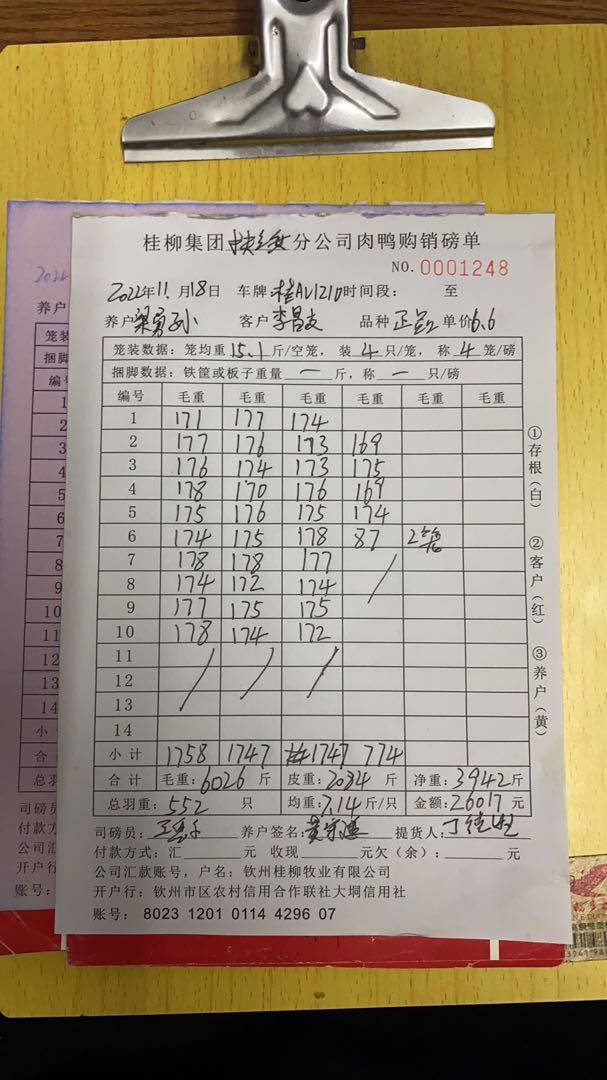 桂柳集团 分公司肉鸭购销磅单
NO. 0001248
2022年11月18日 车牌:桂AV1210 时间段: 至
养户 梁勇孙 客户 李昌友 品种 单价6.6
笼装数据:笼均重15.1斤/空笼,装4只/笼,称4笼/磅
捆脚数据:铁筐或板子重量—斤,称—只/磅
编号 毛重 毛重 毛重 毛重 毛重 毛重
1 171 177 174
2 177 176 173 169
3 176 174 173 175
4 178 170 176 169
5 175 176 175 174
6 174 175 178 87 2笼
7 178 178 177
8 174 172 174
9 177 175 175
10 178 174 172
11
12
13
14
小计 1758 1747 1747 774
合计 毛重:6026斤 皮重:2084斤 净重:3942斤
总羽重:552只 均重:7.14斤/只 金额:26017元
司磅员: 养户签名: 提货人:
付款方式:汇 元 收现 元欠(余): 元
公司汇款账号,户名:钦州桂柳牧业有限公司
开户行:钦州市区农村信用合作联社大垌信用社
账号: 8023 1201 0114 4296 07
①存根(白)
②客户(红)
③养户(黄)
2022
养户
笼装
捆脚
编号
1
2
3
4
5
6
7
8
9
10
11
12
13
14
小
合
总羽
司磅员
付款方
公司汇
开户行
账号: